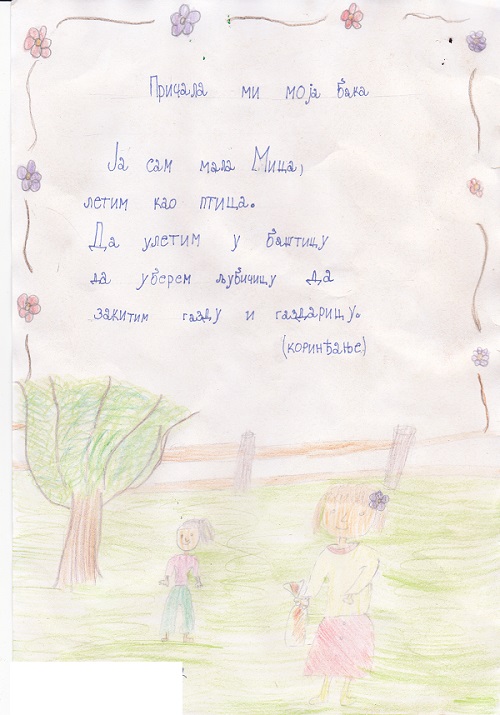 Причала ми моја бака
Ја сам мала Мица,
летим као птица.
Да улетим у баштицу
да уберем љубичицу да
закитим газду и газдарицу.
(коринђање)